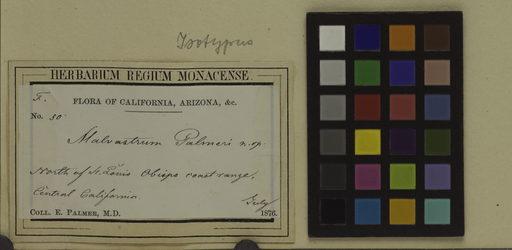 Isotypus
HERBARIUM REGIUM MONACENSE.
F.
FLORA OF CALIFORNIA, ARIZONA, &c.
No. 50
Malvastrum Palmeri n. sp.
North of St. Louis Obispo coast range,
Central California
July
COLL. E. PALMER, M.D. 1876.